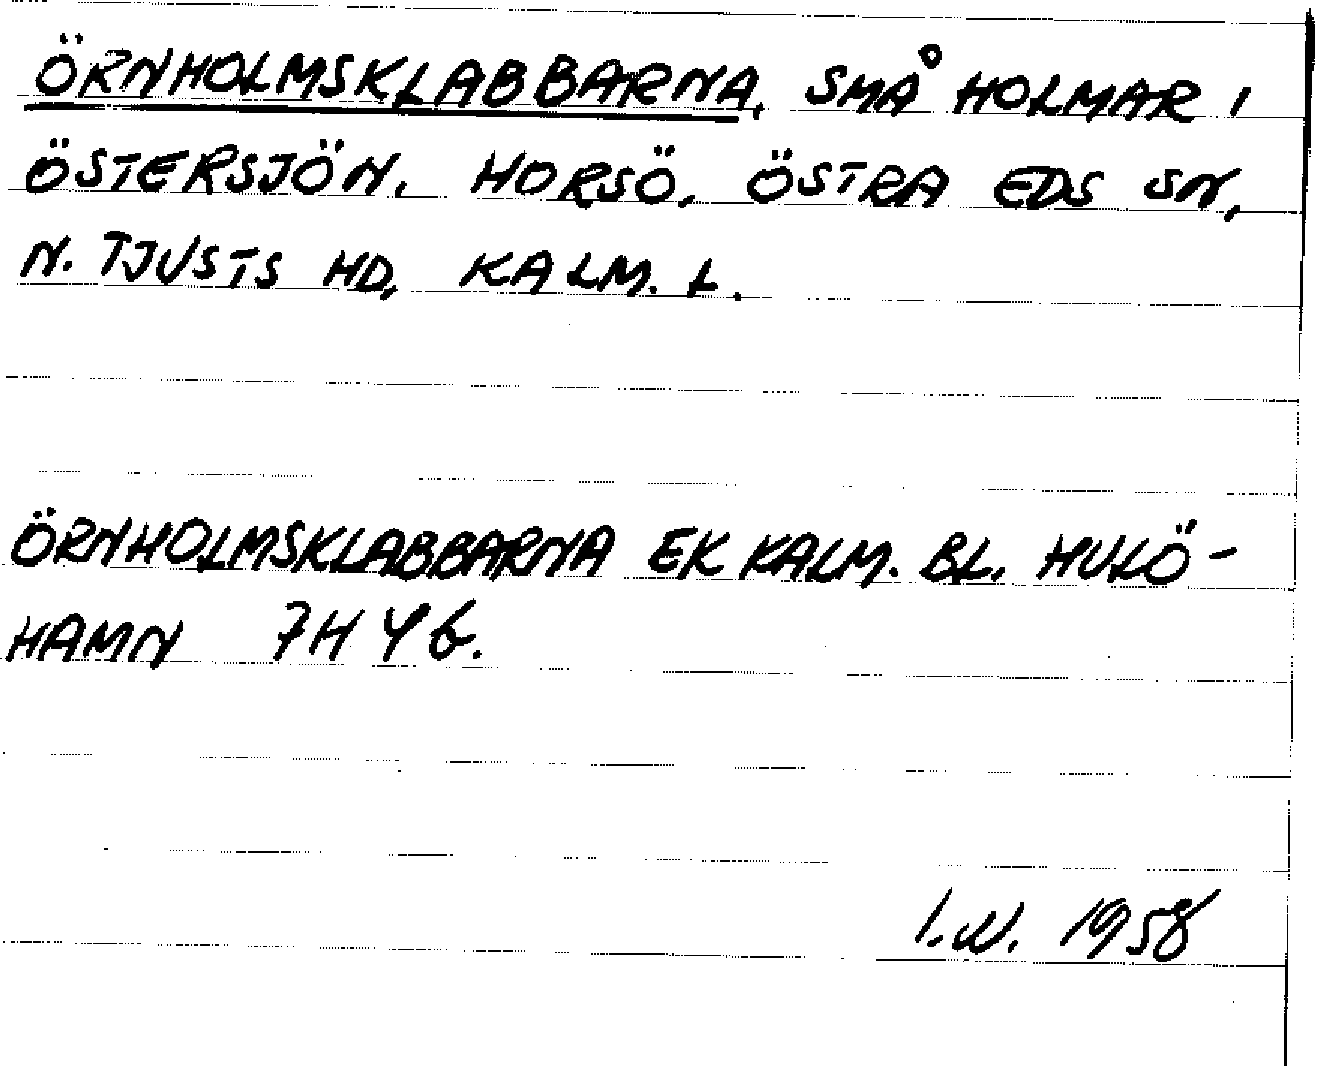 ÖRNHOLMSKLABBARNA, SMÅ HOLMAR I
ÖSTERSJÖN. HORSÖ, ÖSTRA EDS SN,
N. TJUSTS HD, KALM. L.
ÖRNHOLMSKLABBARNA EK KALM. BL. HULÖ-
HAMN 7H 4G.
I.N. 1958